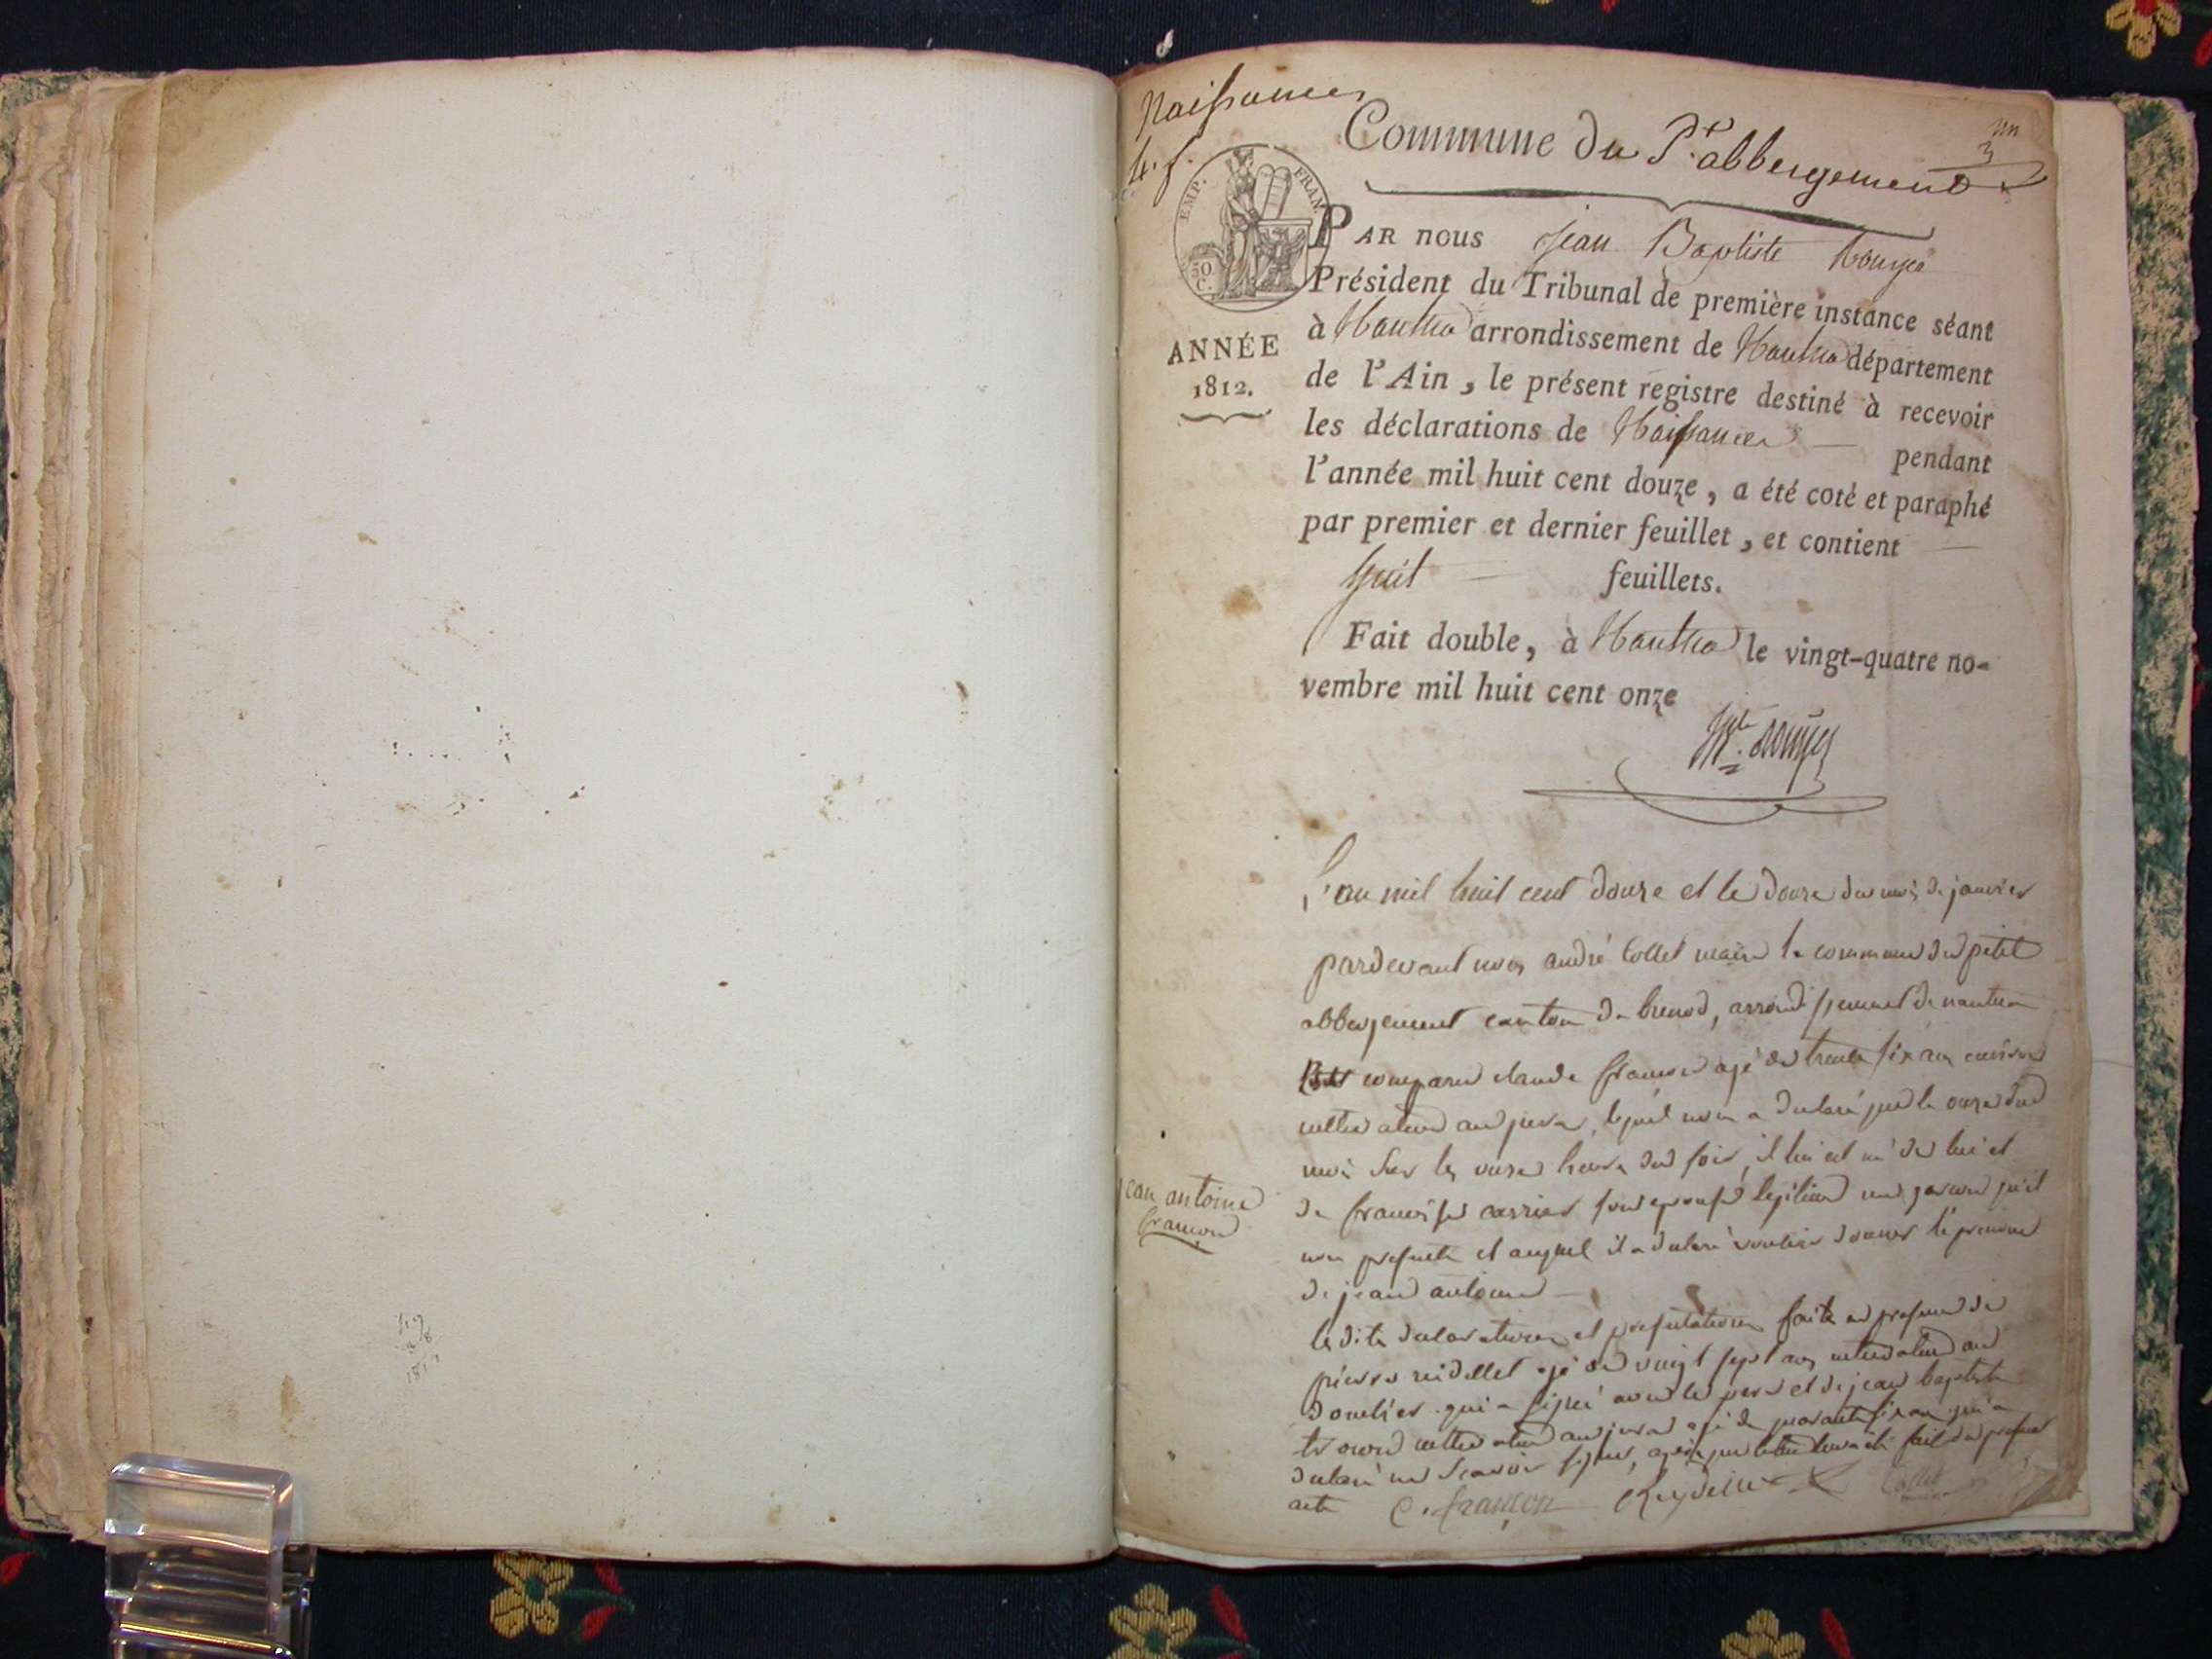 Naissances
4. f.
Commune du Pt. abbergement
un
EMP. FRAN.
50 C.
ANNÉE
1812.
PAR nous Jean Baptiste
Président du Tribunal de première instance séant
à Nantua arrondissement de Nantua département
de l'Ain, le présent registre destiné à recevoir
les déclarations de Naissances pendant
l'année mil huit cent douze, a été coté et paraphé
par premier et dernier feuillet, et contient
huit feuillets.
Fait double, à Nantua le vingt-quatre no-
vembre mil huit cent onze
L'an mil huit cent douze et le douze du mois de janvier
pardevant nous andré Collet maire de commune du petit
abbergement canton de brenod, arrondissement de nantua
comparu claude françon agé de trente six ans environ
cultivateur au jura, lequel nous a declaré que le onze du
mois sur les onze heures du soir, il lui est né de lui et
de françoise carrier son epouse legitime un garcon qu'il
nous presente et auquel il a declaré vouloir donner le prenom
de jean antoine
jean antoine
françon
lesdites declarations et presentations faites en presence de
pierre reidellet agé de vingt sept ans cultivateur au
qui a signé avec le pere et de jean baptiste
cultivateur au jura agé de quarante six ans qui a
declaré ne scavoir signer, apres que lecture leur a été faite du present
acte C. françon Reydellet Collet